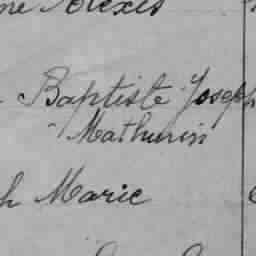 ne Alexis
Baptiste Joseph
Mathurin
h Marie